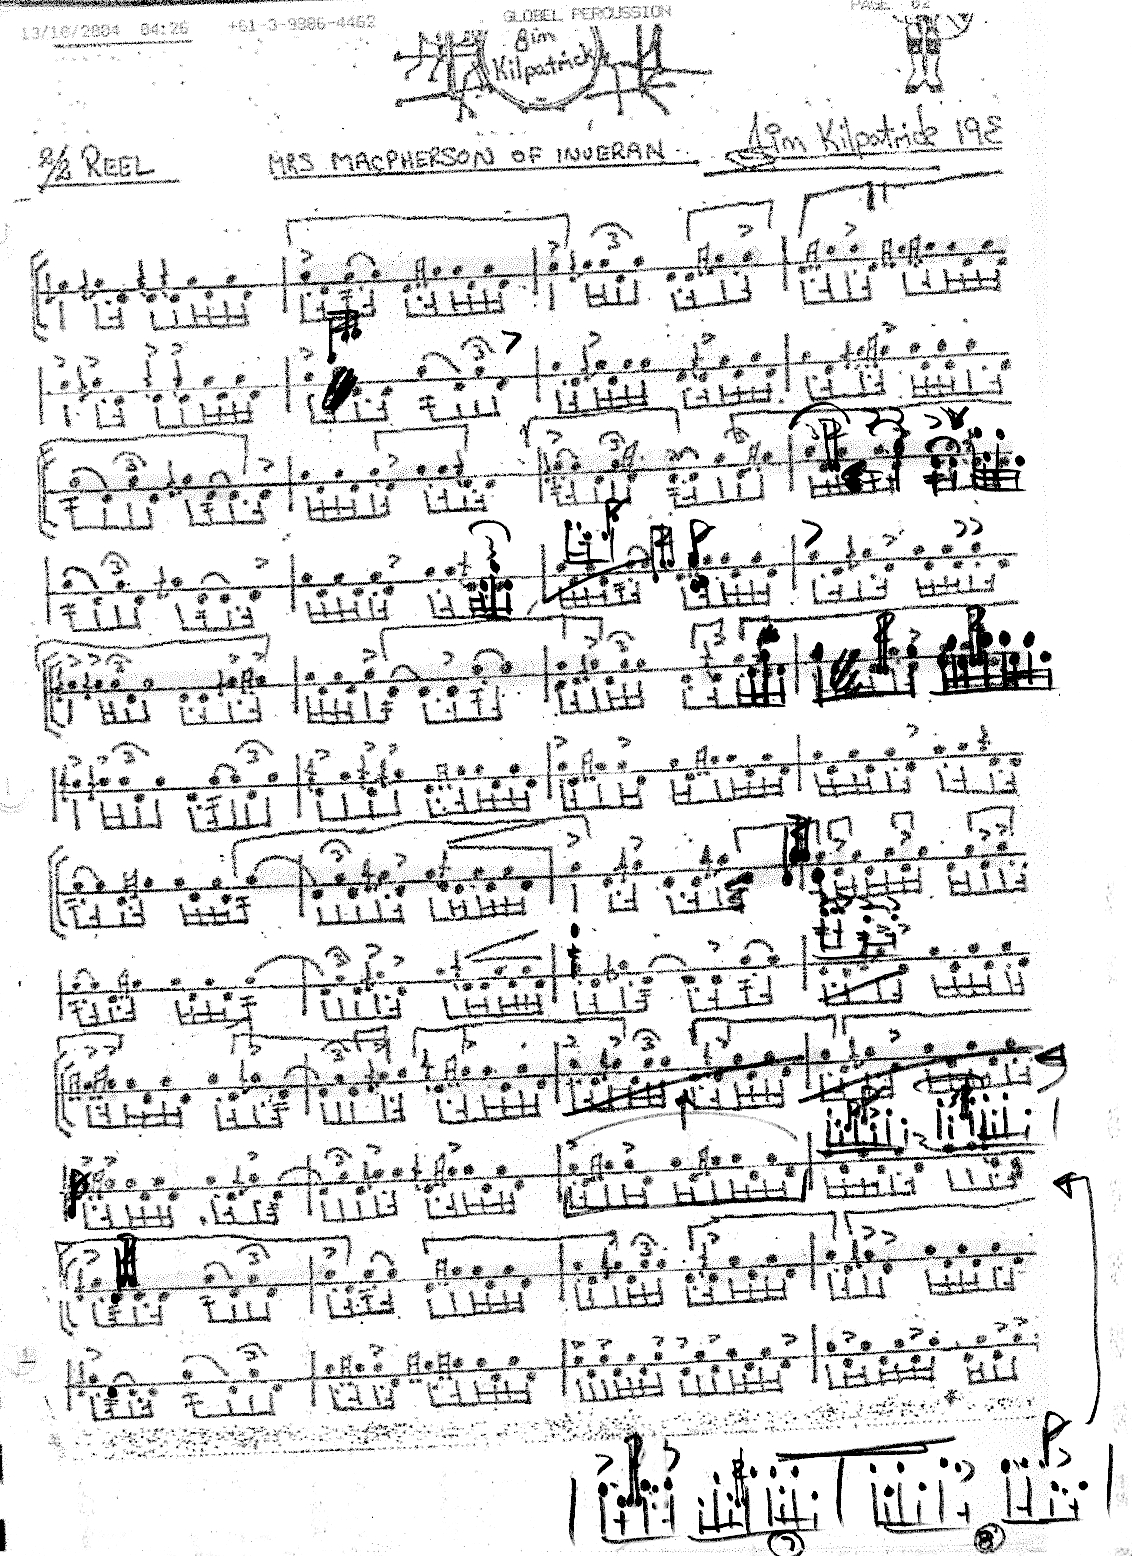 13/10/2004 04:26 +61-3-9886-4462 GLOBEL PERCUSSION PAGE 02
Jim
Kilpatrick
2/2 REEL MRS MACPHERSON OF INVERAN Jim Kilpatrick 198
7 8